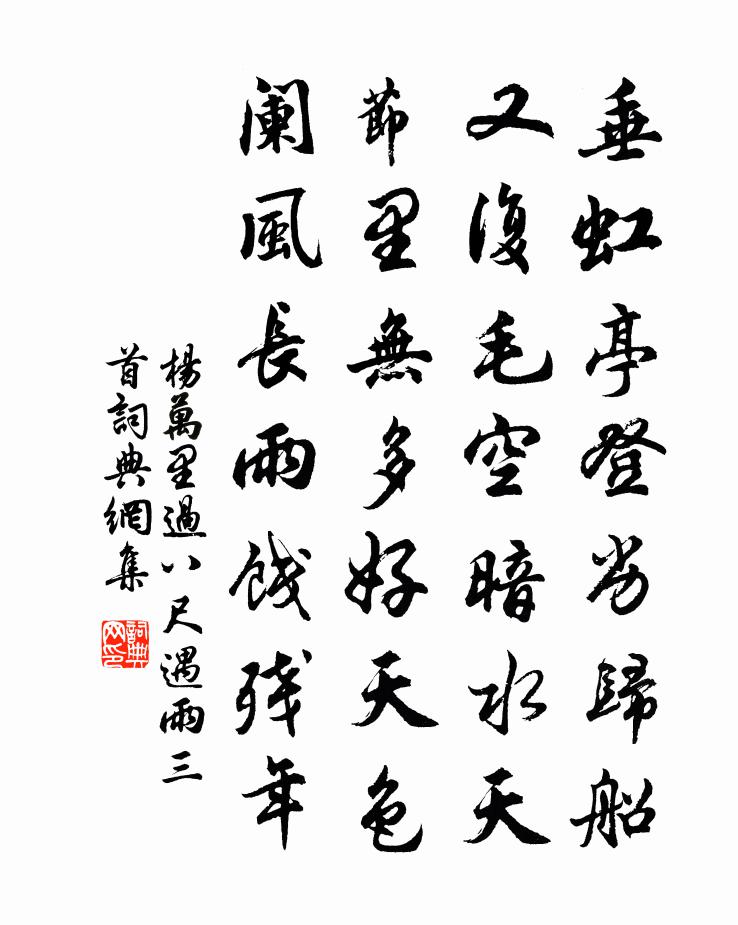 垂虹亭登歸船
又復毛空暗水天
節里無多好天色
闌風長雨餞殘年
楊萬里過八尺遇雨三
首詞典網集
詞典
网印